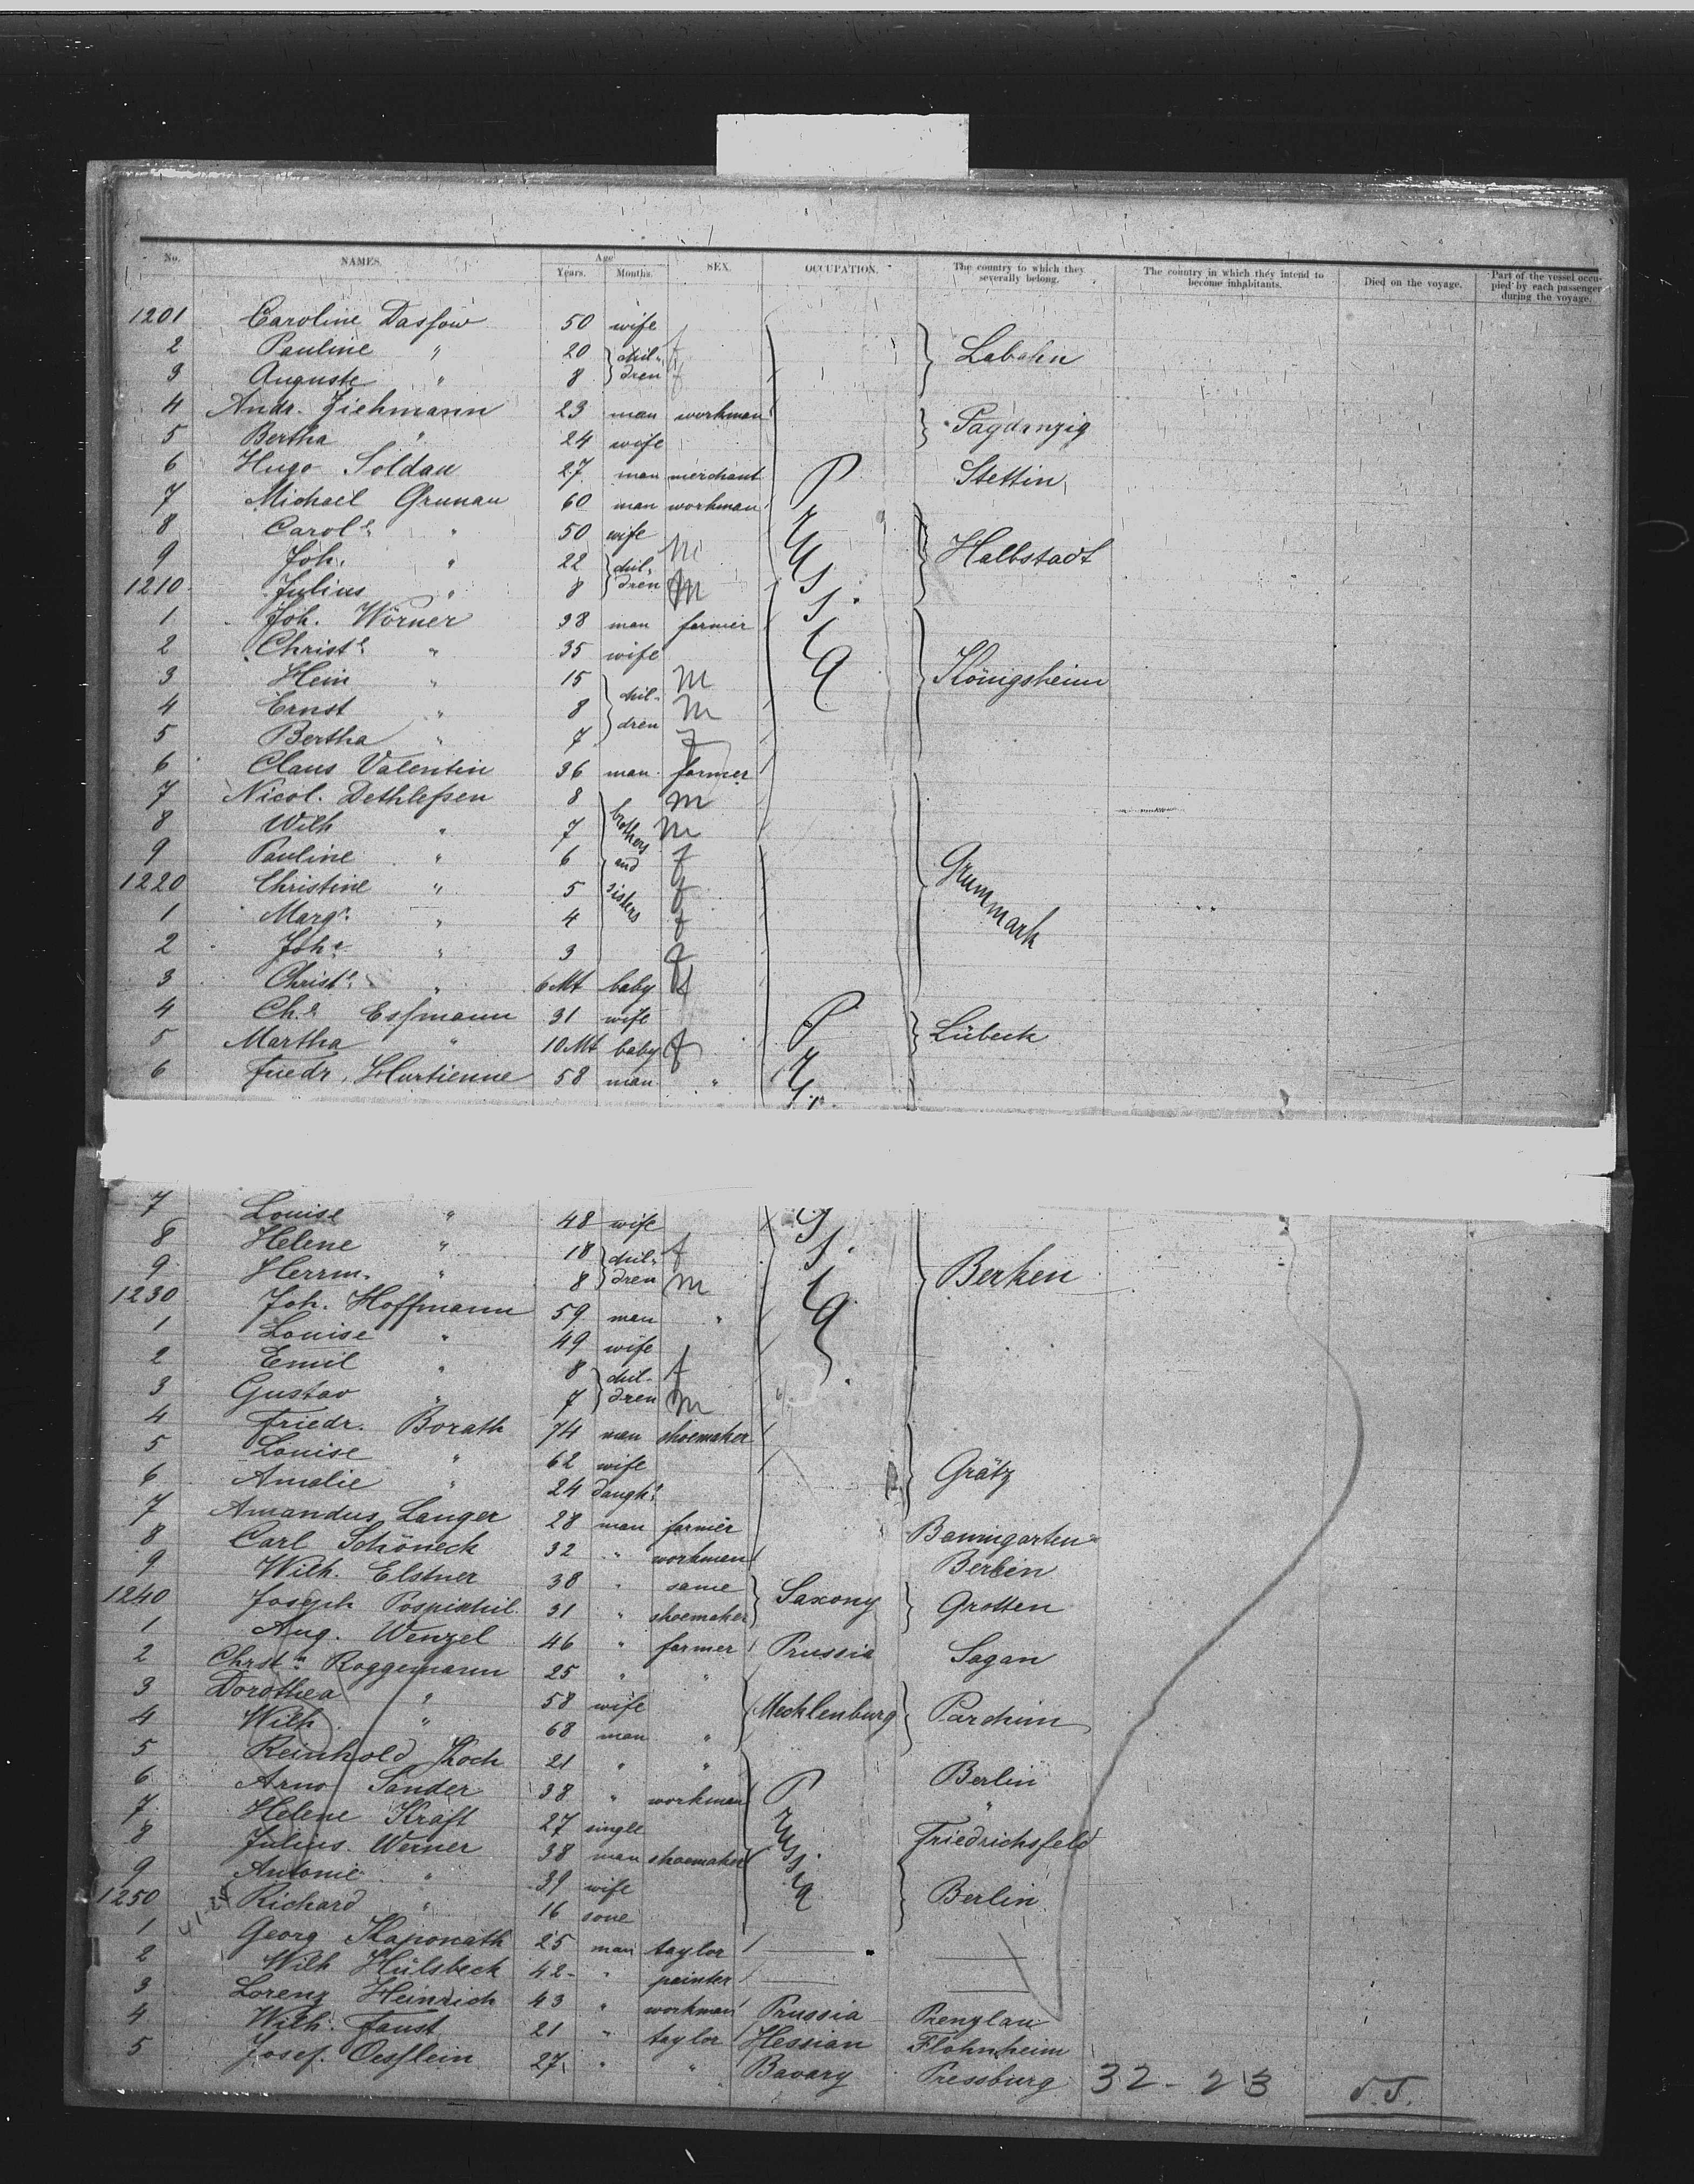 No. NAMES. Age Years. Months. SEX. OCCUPATION. The country to which they severally belong. The country in which they intend to become inhabitants. Died on the voyage. Part of the vessel occupied by each passenger during the voyage.
1201 Caroline Dassow 50 wife
2 Pauline " 20 chil- f Labehn
3 Auguste " 8 dren f
4 Andr. Ziehmann 23 man workman
5 Bertha " 24 wife Pagdanzig
6 Hugo Soldau 27 man merchant Stettin
7 Michael Grunau 60 man workman
8 Carol.e " 50 wife Halbstadt
9 Joh. " 22 chil- m
1210 Julius " 8 dren m
1 Joh. Wörner 38 man farmer
2 Christ.e " 35 wife
3 Hein " 15 chil- m Königsheim
4 Ernst " 8 dren m
5 Bertha " 7 f
6 Claus Valentin 36 man farmer
7 Nicol. Dethlefsen 8 brothers m
8 Wilh " 7 m
9 Pauline " 6 and f Grummark
1220 Christine " 5 sisters f
1 Marg. " 4 f
2 Joh.e " 3 f
3 Christ.e " 6 Mt baby f
4 Ch.e Essmann 31 wife
5 Martha " 10 Mt baby f Lübeck
6 Friedr. Hurtienne 58 man "
7 Louise " 48 wife
8 Helene " 18 chil- f
9 Herrm. " 8 dren m Berken
1230 Joh. Hoffmann 59 man "
1 Louise " 49 wife
2 Emil " 8 chil- f
3 Gustav " 7 dren m
4 Friedr. Borath 74 man shoemaker
5 Louise " 62 wife Grätz
6 Amalie " 24 daught.
7 Amandus Langer 28 man farmer Baumgarten
8 Carl Schöneck 32 " workman Berlin
9 Wilh. Elstner 38 " same Saxony Grotten
1240 Joseph Pospischil 31 " shoemaker
1 Aug. Wenzel 46 " farmer Prussia Sagan
2 Chrst.n Roggemann 25 " "
3 Dorothea " 58 wife Mecklenburg Parchim
4 Wilh " 68 man "
5 Reinhold Koch 21 " " Berlin
6 Arno Sander 38 " workman "
7 Helene Kraft 27 single Friedrichsfeld
8 Julius Werner 38 man shoemaker
9 Antonie " 39 wife Berlin
1250 Richard " 16 sone
1 Georg Kaponath 25 man taylor
2 Wilh Hülsbeck 42 " painter
3 Lorenz Heinrich 43 " workman Prussia Prenzlau
4 Wilh. Faust 21 " taylor Hessian Flohnheim
5 Josef. Oesslein 27 " " Bavary Pressburg
32 - 23